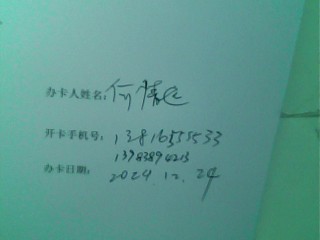 办卡人姓名：何
开卡手机号：13816555533
13983894213
办卡日期：2024.12.24